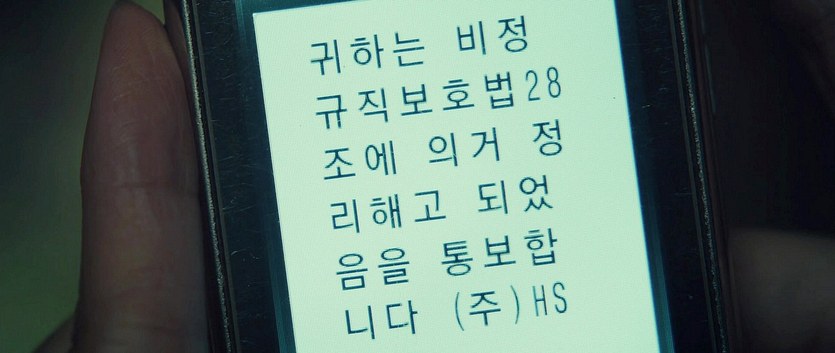 귀하는 비정
규직보호법28
조에 의거 정
리해고 되었
음을 통보합
니다 (주)HS